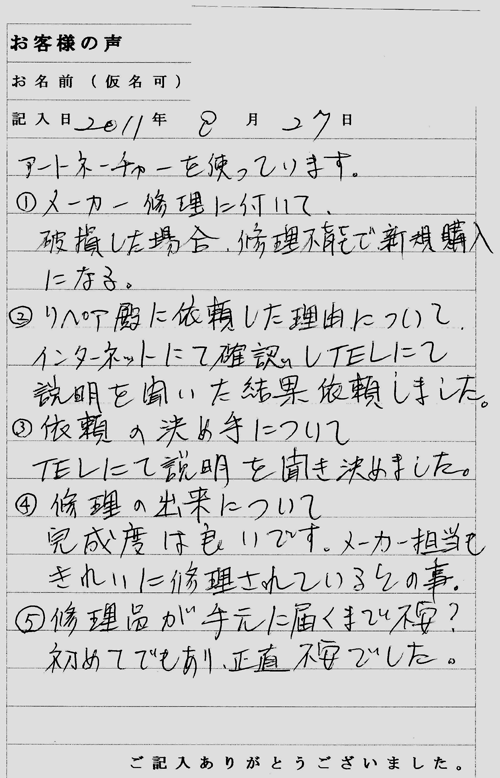 お客様の声
お名前(仮名可)
記入日 2011年 8月 27日
アートネーチャーを使っています。
①メーカー修理に付いて、
破損した場合、修理不能で新規購入
になる。
②リペア殿に依頼した理由について、
インターネットにて確認いしTELにて
説明を聞いた結果依頼しました。
③依頼の決め手について
TELにて説明を聞き決めました。
④修理の出来について
完成度は良いです。メーカー担当も
きれいに修理されているとの事。
⑤修理品が手元に届くまで不安?
初めてでもあり、正直不安でした。
ご記入ありがとうございました。